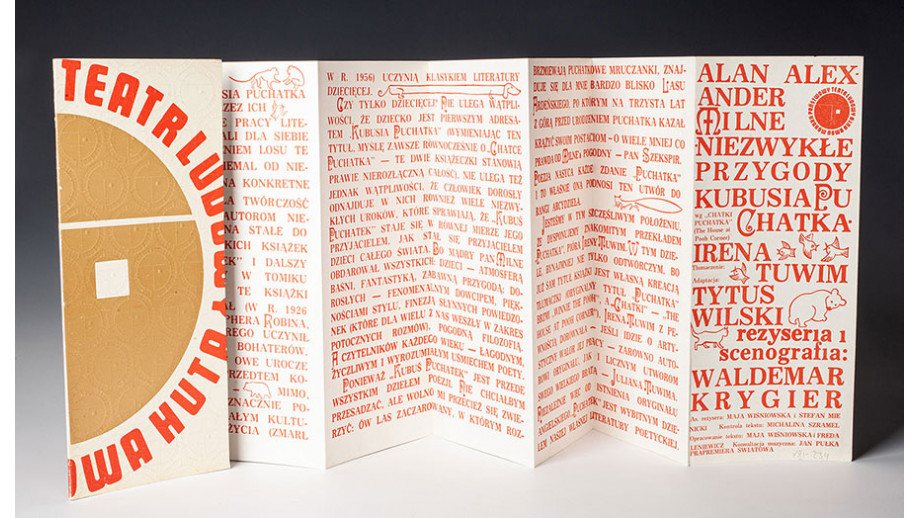 TEATR LUDOWY
NOWA HUTA
SIA PUCHATKA
ZEZ ICH
E PRACY LITE-
ALI DLA SIEBIE
NIEM LOSU TE
IEMAL OD NIE-
NA KONKRETNE
A TWÓRCZOŚĆ
AUTOROM NIE-
NA STAŁE DO
KICH KSIĄŻEK
EK" I DALSZY
W TOMIKU
TE KSIĄŻKI
AŁ (W R. 1926
PHERA ROBINA,
REGO UCZYNIŁ
BOHATERÓW.
OWE UROCZE
PRZEDTEM KO-
MIMO,
ZNACZNIE PO-
AŁYM KULTU-
ŻYCIA (ZMARŁ
W R. 1956) UCZYNIĄ KLASYKIEM LITERATURY
DZIECIĘCEJ.
CZY TYLKO DZIECIĘCEJ? NIE ULEGA WĄTPLI-
WOŚCI, ŻE DZIECKO JEST PIERWSZYM ADRESA-
TEM „KUBUSIA PUCHATKA" (WYMIENIAJĄC TEN
TYTUŁ, MYŚLĘ ZAWSZE RÓWNOCZEŚNIE O „CHATCE
PUCHATKA" — TE DWIE KSIĄŻECZKI STANOWIĄ
PRAWIE NIEROZŁĄCZNĄ CAŁOŚĆ). NIE ULEGA TEŻ
JEDNAK WĄTPLIWOŚCI, ŻE CZŁOWIEK DOROSŁY
ODNAJDUJE W NICH RÓWNIEŻ WIELE NIEZWY-
KŁYCH UROKÓW, KTÓRE SPRAWIAJĄ, ŻE „KUBUŚ
PUCHATEK" STAJE SIĘ W RÓWNEJ MIERZE JEGO
PRZYJACIELEM, JAK STAŁ SIĘ PRZYJACIELEM
DZIECI CAŁEGO ŚWIATA. BO MĄDRY PAN MILNE
OBDAROWAŁ WSZYSTKICH: DZIECI — ATMOSFERĄ
BAŚNI, FANTASTYKĄ, ZABAWNĄ PRZYGODĄ; DO-
ROSŁYCH — FENOMENALNYM DOWCIPEM, PIĘK-
NOŚCIAMI STYLU, FINEZJĄ SŁYNNYCH POWIEDZO-
NEK (KTÓRE DLA WIELU Z NAS WESZŁY W ZAKRES
POTOCZNYCH ROZMÓW), POGODNĄ FILOZOFIĄ,
A CZYTELNIKÓW KAŻDEGO WIEKU — ŁAGODNYM,
ŻYCZLIWYM I WYROZUMIAŁYM UŚMIECHEM POETY.
PONIEWAŻ „KUBUŚ PUCHATEK" JEST PRZEDE
WSZYSTKIM DZIEŁEM POEZJI. NIE CHCIAŁBYM
PRZESADZAĆ, ALE WOLNO MI PRZECIEŻ SIĘ ZWIE-
RZYĆ: ÓW LAS ZACZAROWANY, W KTÓRYM ROZ-
BRZMIEWAJĄ PUCHATKOWE MRUCZANKI, ZNAJ-
DUJE SIĘ DLA MNIE BARDZO BLISKO LASU
ARDEŃSKIEGO, PO KTÓRYM NA TRZYSTA LAT
Z GÓRĄ PRZED URODZENIEM PUCHATKA KAZAŁ
KRĄŻYĆ SWOIM POSTACIOM — O WIELE MNIEJ CO
PRAWDA OD MILNE'A POGODNY — PAN SZEKSPIR.
POEZJA NASYCA KAŻDE ZDANIE „PUCHATKA"
I TO WŁAŚNIE ONA PODNOSI TEN UTWÓR DO
RANGI ARCYDZIEŁA.
JESTEŚMY W TYM SZCZĘŚLIWYM POŁOŻENIU,
ŻE DYSPONUJEMY ZNAKOMITYM PRZEKŁADEM
PUCHATKA", PIÓRA IRENY TUWIM. W TYM DZIE-
LE, BYNAJMNIEJ NIE TYLKO ODTWÓRCZYM, BO
JUŻ SAM TYTUŁ KSIĄŻKI JEST WŁASNĄ KREACJĄ
TŁUMACZKI (ORYGINALNY TYTUŁ „PUCHATKA"
BRZMI „WINNIE THE POOH", A „CHATKI" — „THE
HOUSE AT POOH CORNER"), IRENA TUWIM Z PE-
WNOŚCIĄ DORÓWNAŁA — JEŚLI IDZIE O ARTY-
STYCZNY WALOR JEJ PRACY — ZARÓWNO AUTO-
ROWI ORYGINAŁU, JAK I LICZNYM UTWOROM
SWEGO WIELKIEGO BRATA — JULIANA TUWIMA.
NIEZALEŻNIE WIĘC OD ISTNIENIA ORYGINAŁU
ANGIELSKIEGO „PUCHATEK" JEST WYBITNYM DZIE-
ŁEM NASZEJ WŁASNEJ LITERATURY POETYCKIEJ.
ALAN ALEX-
ANDER
MILNE
NIEZWYKŁE
PRZYGODY
KUBUSIA PU
CHATKA·
wg „CHATKI
PUCHATKA"
(The House at
Pooh Corner)
IRENA
Tłumaczenie:
TUWIM
Adaptacja:
TYTUS
WILSKI
reżyseria i
scenografia:
WALDEMAR
KRYGIER
As. reżysera: MAJA WIŚNIOWSKA i STEFAN MIE
NICKI Kontrola tekstu: MICHALINA SZRAMEL
Opracowanie tekstu: MAJA WIŚNIOWSKA i FREDA
LENIEWICZ Konsultacja muzyczna: JAN PUŁKA
PRAPREMIERA ŚWIATOWA